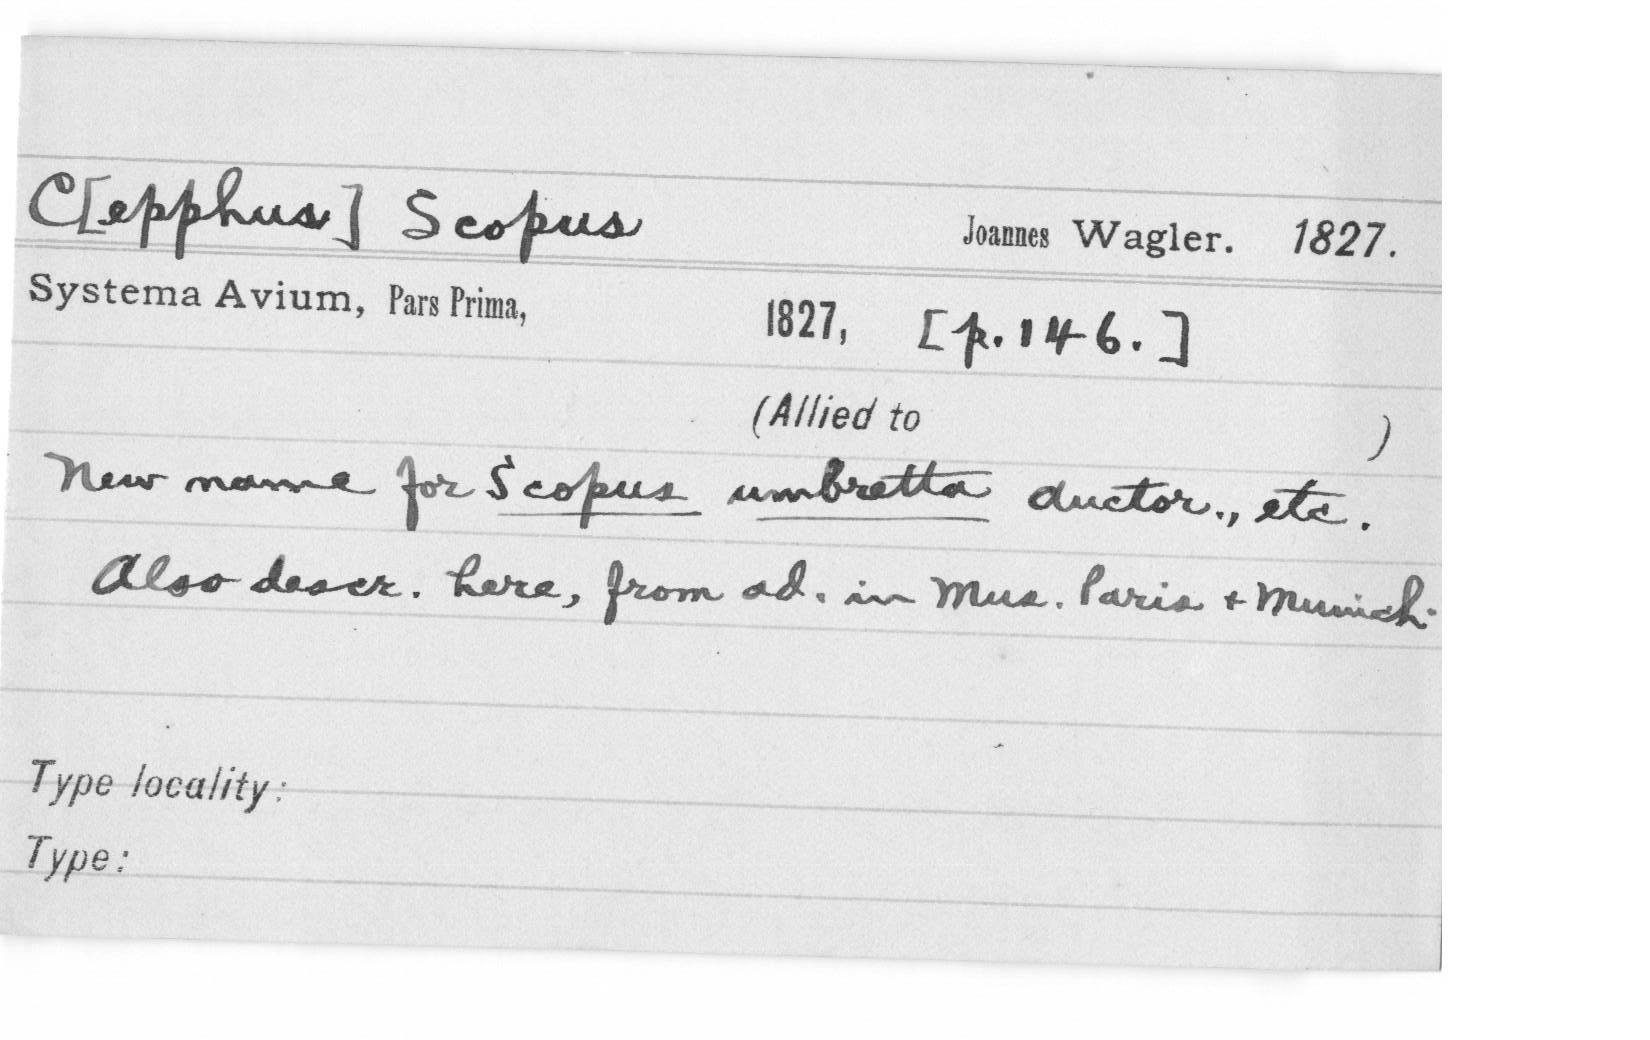 C[epphus] Scopus Joannes Wagler. 1827.
Systema Avium, Pars Prima, 1827, [p. 146.]
(Allied to )
New name for Scopus umbretta auctor., etc.
Also descr. here, from ad. in Mus. Paris + Munich.
Type locality:
Type: